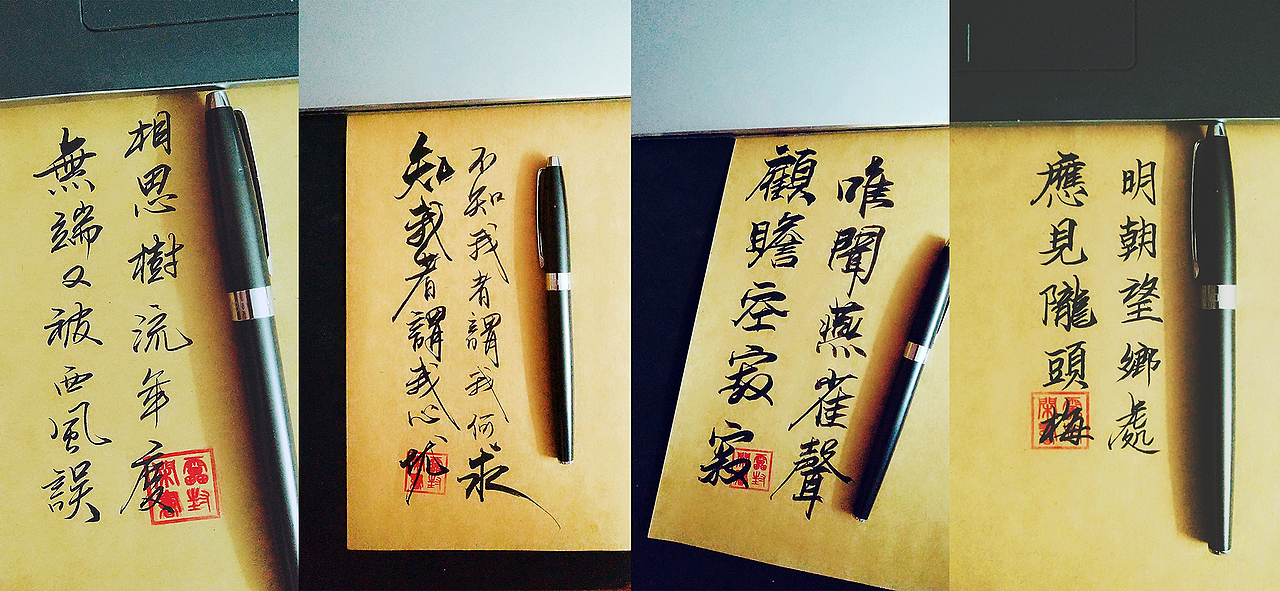 相思樹流年度
無端又被西風誤
知我者謂我心忧
不知我者謂我何求
顧瞻空寂寂
唯聞燕雀聲
明朝望鄉處
應見隴頭梅